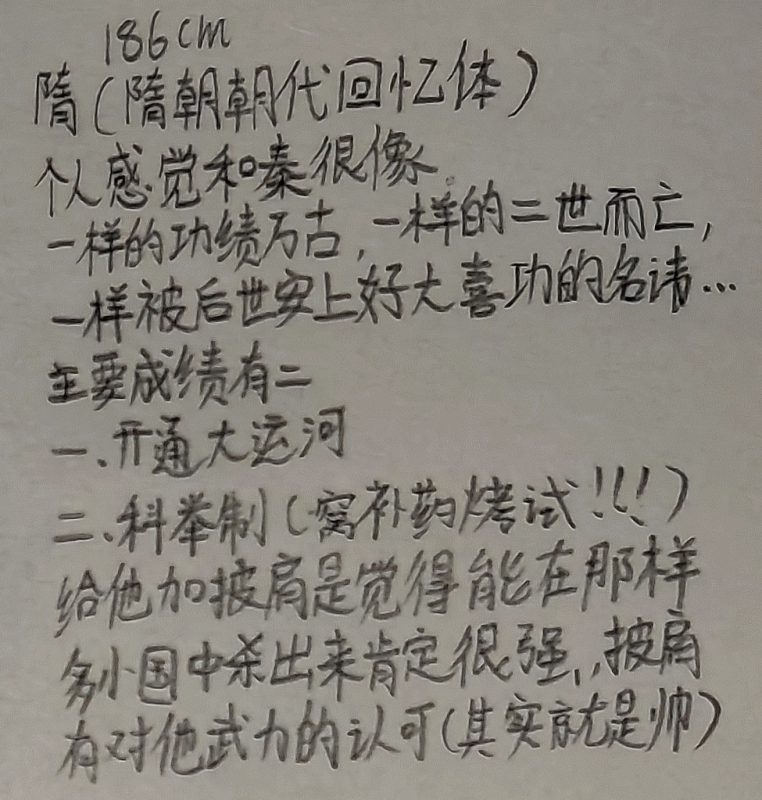 186cm
隋(隋朝朝代回忆体)
个人感觉和秦很像。
一样的功绩万古,一样的二世而亡,
一样被后世安上好大喜功的名讳…
主要成绩有二
一、开通大运河
二、科举制(窝补药烤试!!!)
给他加披肩是觉得能在那样
多小国中杀出来肯定很强,,披肩
有对他武力的认可(其实就是帅)